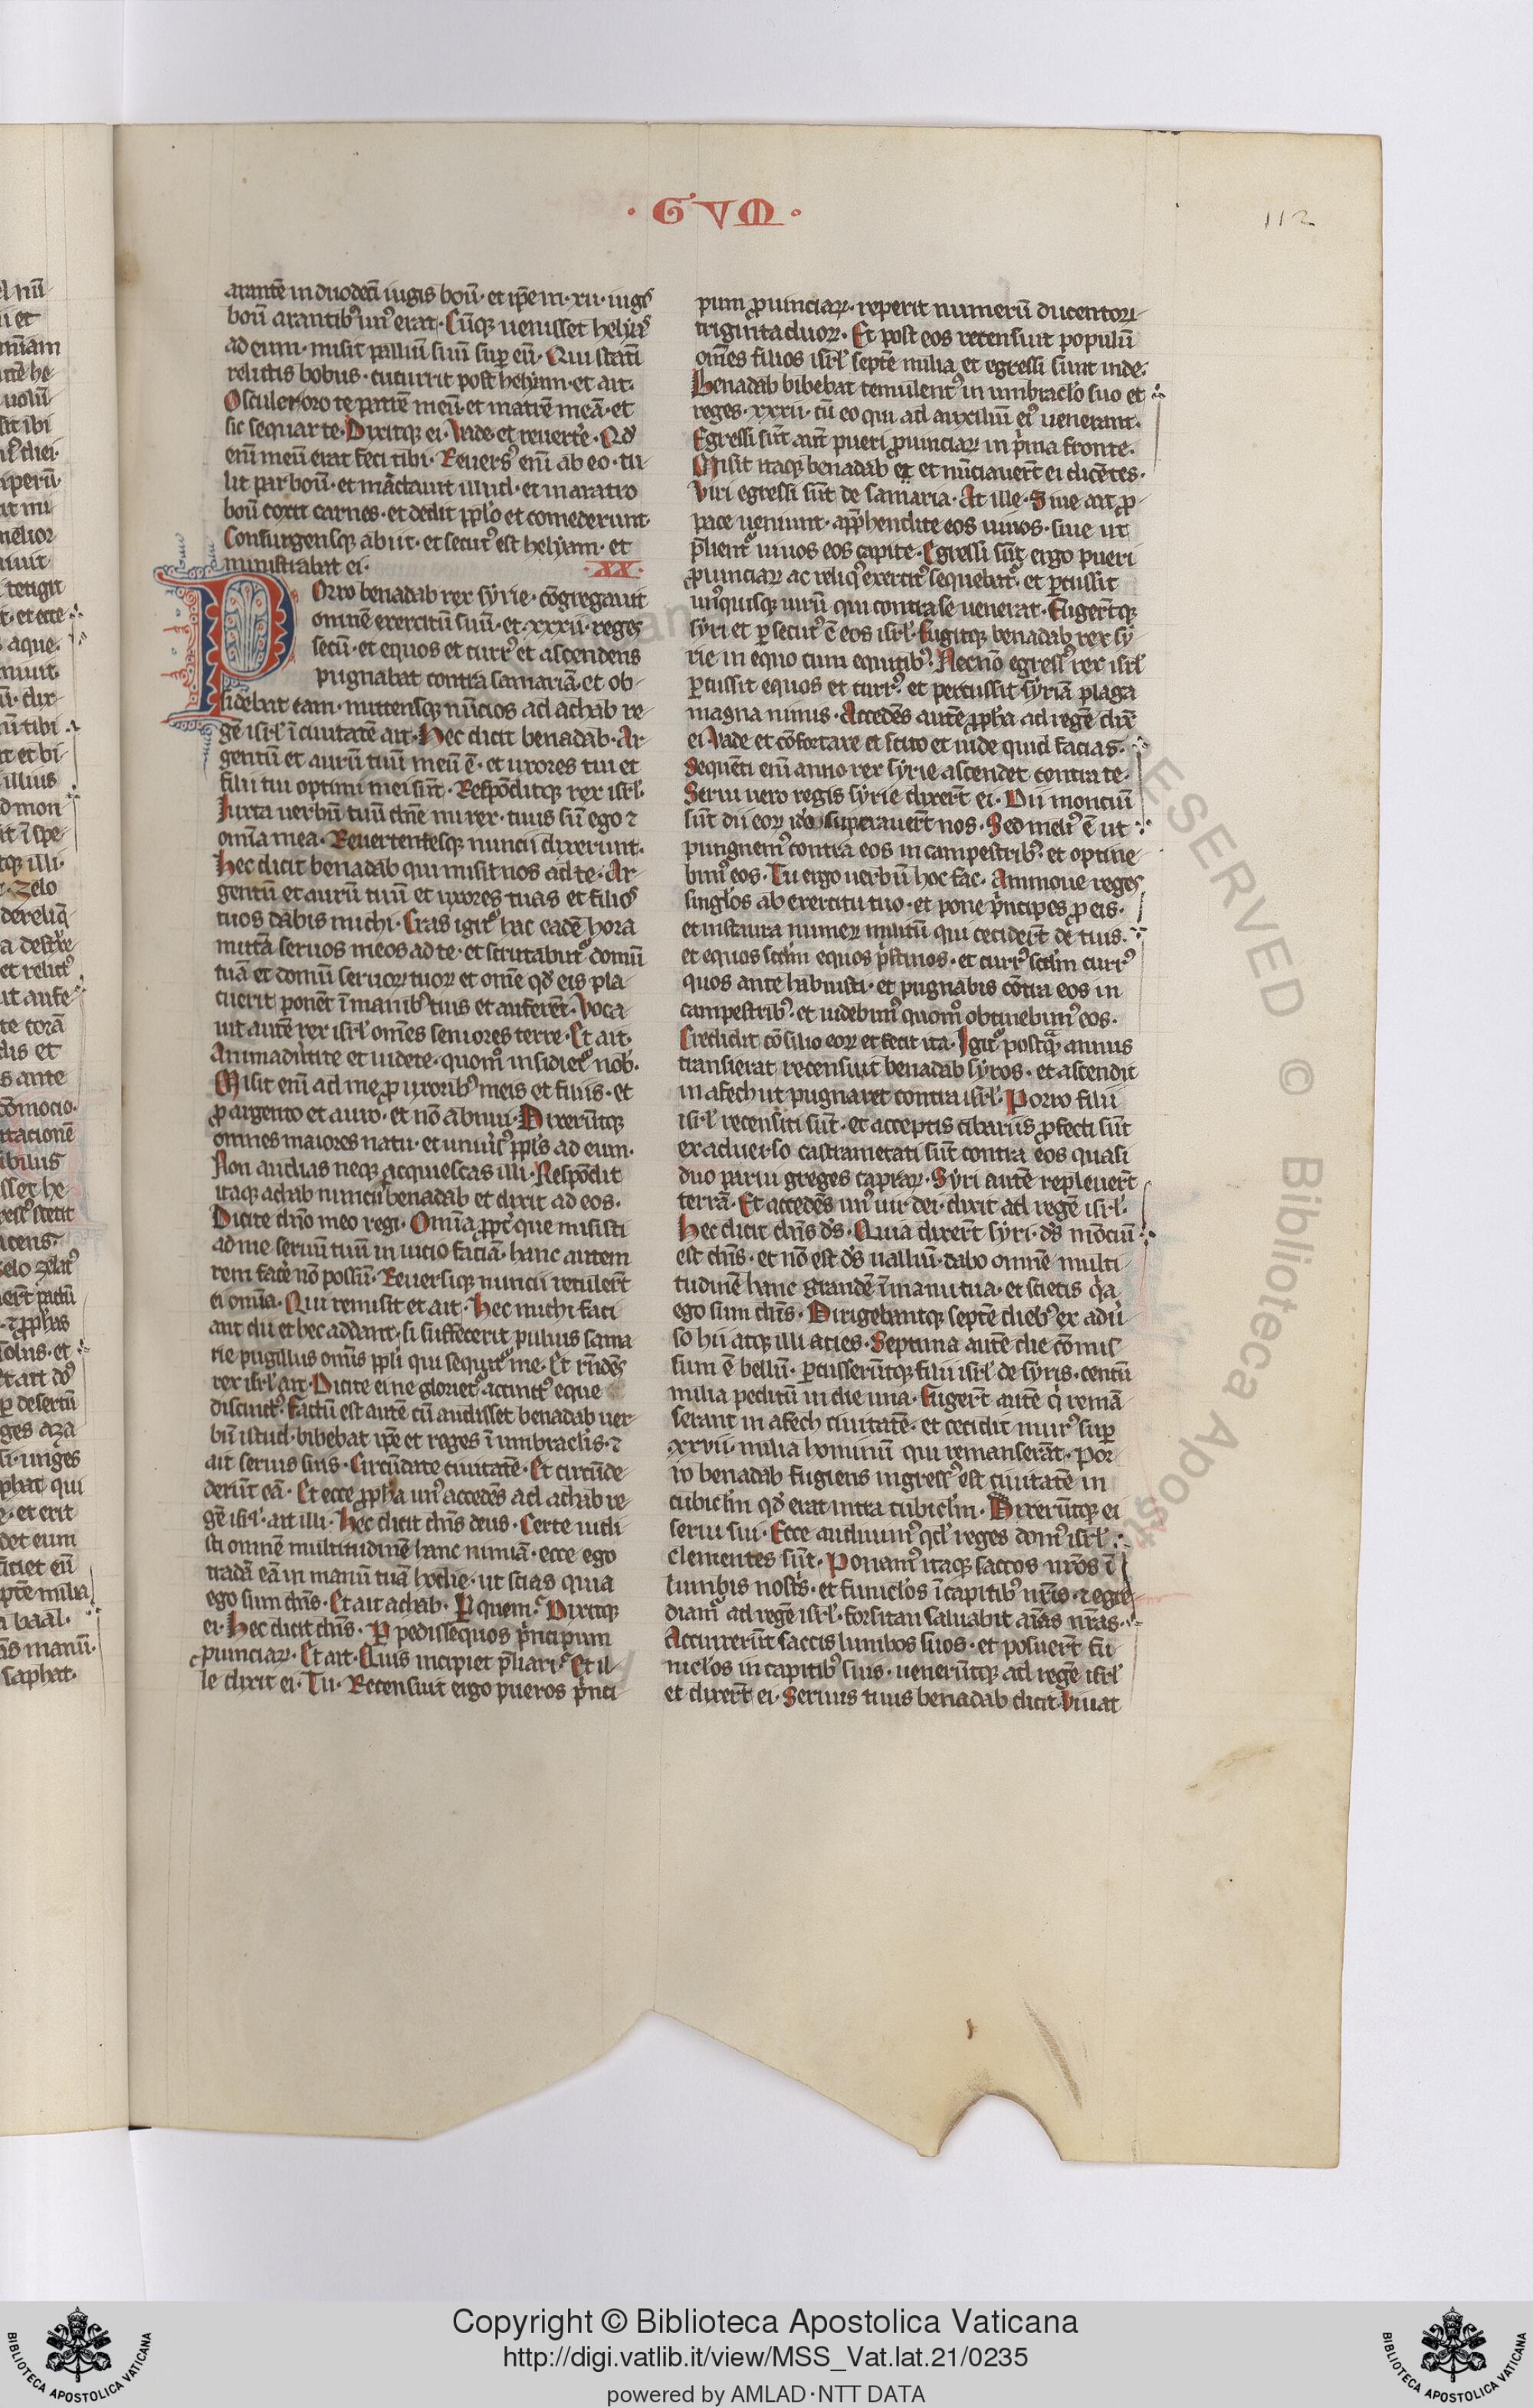 · GVM ·
112
arantē in duodecī iugis boū· et ip̄e in· xii· iugꝭ
boū arantibꝰ unꝰ erat· Cūqꝫ uenisset helyꝰ
ad eum· misit palliū suū sup̱ eū· Qui statī
relictis bobus· cucurrit post helyam· et ait·
Osculer oro te patrē meū· et matrē meā· et
sic sequar te· Dixitqꝫ ei· Vade et reuert̄e· Qd̓
enī meū erat feci tibi· Reuersꝰ enī ab eo· tu
lit par boū· et mactauit illud· et in aratro
boū coxit carnes· et dedit pp̄lo et comederunt·
Consurgensqꝫ abiit· et secutꝰ est helyam· et
ministrabat ei· ·XX·
POrro benadab rex syrie· cōgregauit
omnē exercitū suū· et· xxxii· reges
secū· et equos et currꝰ et ascendens
pugnabat contra samariā· et ob
sidebat eam· mittensqꝫ nūcios ad achab re
gē isrl̓ ī ciuitatē ait· Hec dicit benadab· Ar
gentū et aurū tuū meū ē· et uxores tui et
filii tui optimi mei sūt· Respōditqꝫ rex isrl̓·
Iuxta uerbū tuū dn̄e mi rex· tuus sū ego ⁊
omīa mea· Reuertentesqꝫ nuncii dixerunt·
Hec dicit benadab qui misit nos ad te· Ar
gentū et aurū tuū et uxores tuas et filioꝰ
tuos dabis michi· Cras igit᷑ hac eadē hora
mittā seruos meos ad te· et scrutabūt᷑ domū
tuā et domū seruoꝝ tuoꝝ et om̄e qd̓ eis pla
cuerit ponēt ī manibꝰ tuis et auferēt· Voca
uit autē rex isrl̓ om̄es seniores terre· Et ait·
Animadūtite et uidete· quom̊ insidiet᷑ nob̓·
Misit enī ad me ꝓ uxoribꝰ meis et filiis· et
ꝓ argento et auro· et nō abnui· Dixerūtqꝫ
omnes maiores natu· et uniūsꝰ pp̄ls ad eum·
Non audias neqꝫ acquiescas illi· Respōdit
itaqꝫ achab nunciis benadab et dixit ad eos·
Dicite dn̄o meo regi· Omīa ꝓpt̄ que misisti
ad me seruū tuū in inicio faciā· hanc autem
rem face̓ nō possū· Reuersiqꝫ nuncii retulert̄
ei omīa· Qui remisit et ait· Hec michi faci
ant dii et hec addant· si suffecerit puluis sama
rie pugillus om̄is pp̄li qui sequit᷑ me· Et rn̄dēs
rex isrl̓ ait· Dicite ei ne gloriet᷑ accinctꝰ eque
discinctꝰ· Factū est autē cū audisset benadab uer
bū istud· bibebat ip̄e et reges ī umbraclis· ⁊
ait seruis suis· Circūdate ciuitatē· Et circūde
derūt eā· Et ecce ꝓpha unꝰ accedēs ad achab re
gē isrl̓· ait illi· Hec dicit dn̄s deus· Certe uidi
sti omnē multitudinē hanc nimiā· ecce ego
tradā eā in manū tuā hodie· ut scias quia
ego sum dn̄s· Et ait achab· Ꝑ quem· Dixitqꝫ
ei· Hec dicit dn̄s· Ꝑ pedissequos p̄ncipum
ꝓuinciaꝝ· Et ait· Quis incipiet p̄liari· Et il
le dixit ei· Tu· Recensuit ergo pueros p̄nci
pum ꝓuinciaꝝ· reperit numerū ducentoꝝ
triginta duoꝝ· Et post eos recensuit populū
om̄es filios isrl̓ septē milia et egressi sunt inde·
Benadab bibebat temulentꝰ in umbraclo suo et
reges· xxxii· cū eo qui ad auxiliū eiꝰ uenerant·
Egressi sūt aūt pueri ꝓuinciaꝝ in p̓ma fronte·
Misit itaqꝫ benadab et et nūciauert̄ ei dicētes·
Viri egressi sūt de samaria· At ille· Siue ait ꝓ
pace ueniunt· app̄hendite eos uiuos· siue ut
p̄lient᷑ uiuos eos capite· Egressi sūt ergo pueri
ꝓuinciaꝝ ac reliqꝰ exercitꝰ sequebat᷑· et ꝑcussit
unꝰquisqꝫ uirū qui contra se uenerat· Fugert̄qꝫ
syri et ꝑ secutꝰ ē eos isrl̓· Fugitqꝫ benadab rex sy
rie in equo cum equitibꝰ· Necnō egressꝰ rex isrl̓
ꝑcussit equos et currꝰ· et percussit syriā plaga
magna nimis· Accedēs autē ꝓpha ad regē dix̄
ei Vade et cōfortare et scito et uide quid facias·
Sequēti enī anno rex syrie ascendet contra te·
Serui uero regis syrie dixert̄ ei· Dii montiū
sūt dii eoꝝ id̓o superauert̄ nos· Sed meliꝰ ē ut
pungnemꝰ contra eos in campestribꝰ· et optine
bimꝰ eos· Tu ergo uerbū hoc fac· Ammoue reges
singl̓os ab exercitu tuo· et pone p̓ncipes ꝓ eis·
et instaura numeꝝ militū qui ceciderт̄ de tuis·
et equos scd̓m equos p̓stinos· et currꝰ scd̓m currꝰ
quos ante habuisti· et pugnabis cōtra eos in
campestribꝰ· et uidebimꝰ quom̊ obtinebimꝰ eos·
Credidit cōsilio eoꝝ et fecit ita· Igit᷑ postqᷓ annus
transierat recensuit benadab syros· et ascendit
in afech ut pugnaret contra isrl̓· Porro filii
isrl̓ recensiti sūt· et acceptis cibariis ꝓfecti sūt
ex aduerso castrametati sūt contra eos quasi
duo parui greges capraꝝ· Syri autē repleuert̄
terrā· Et accedēs unꝰ uir dei· dixit ad regē isrl̓·
Hec dicit dn̄s ds̄· Quia dixert̄ syri· ds̄ mōciū
est dn̄s· et nō est ds̄ ualliū· dabo omnē multi
tudinē hanc grandē ī manu tua· et scietis q̓a
ego sum dn̄s· Dirigebantqꝫ septē diebꝰ ex adū
so hii atqꝫ illi acies· Septima autē die cōmis
sum ē bellū· ꝑcusserūtqꝫ filii isrl̓ de syris· centū
milia peditū in die una· Fugert̄ autē q̓ remā
serant in afech ciuitatē· et cecidit murꝰ sup̱
xxvii· milia hominū qui remanserāt· Por
ro benadab fugiens ingressꝰ est ciuitatē in
cubicl̓m qd̓ erat intra cubicl̓m· Dixerūtqꝫ ei
serui sui· Ecce audiuimꝰ qd̓ reges domꝰ isrl̓
clementes sūt· Ponamꝰ itaqꝫ saccos nr̄os ī
lumbis nost̓s· et funicl̓os ī capitibꝰ nr̄is· ⁊ egre
diamꝰ ad regē isrl̓· forsitan saluabit aīas nr̄as·
Accinxerūt saccis lumbos suos· et posuert̄ fu
nicl̓os in capitibꝰ suis· uenerūtqꝫ ad regē isrl̓
et dixert̄ ei· Seruus tuus benadab dicit· Viuat
Copyright © Biblioteca Apostolica Vaticana
http://digi.vatlib.it/view/MSS_Vat.lat.21/0235
powered by AMLAD·NTT DATA
BIBLIOTECA APOSTOLICA VATICANA
BIBLIOTECA APOSTOLICA VATICANA